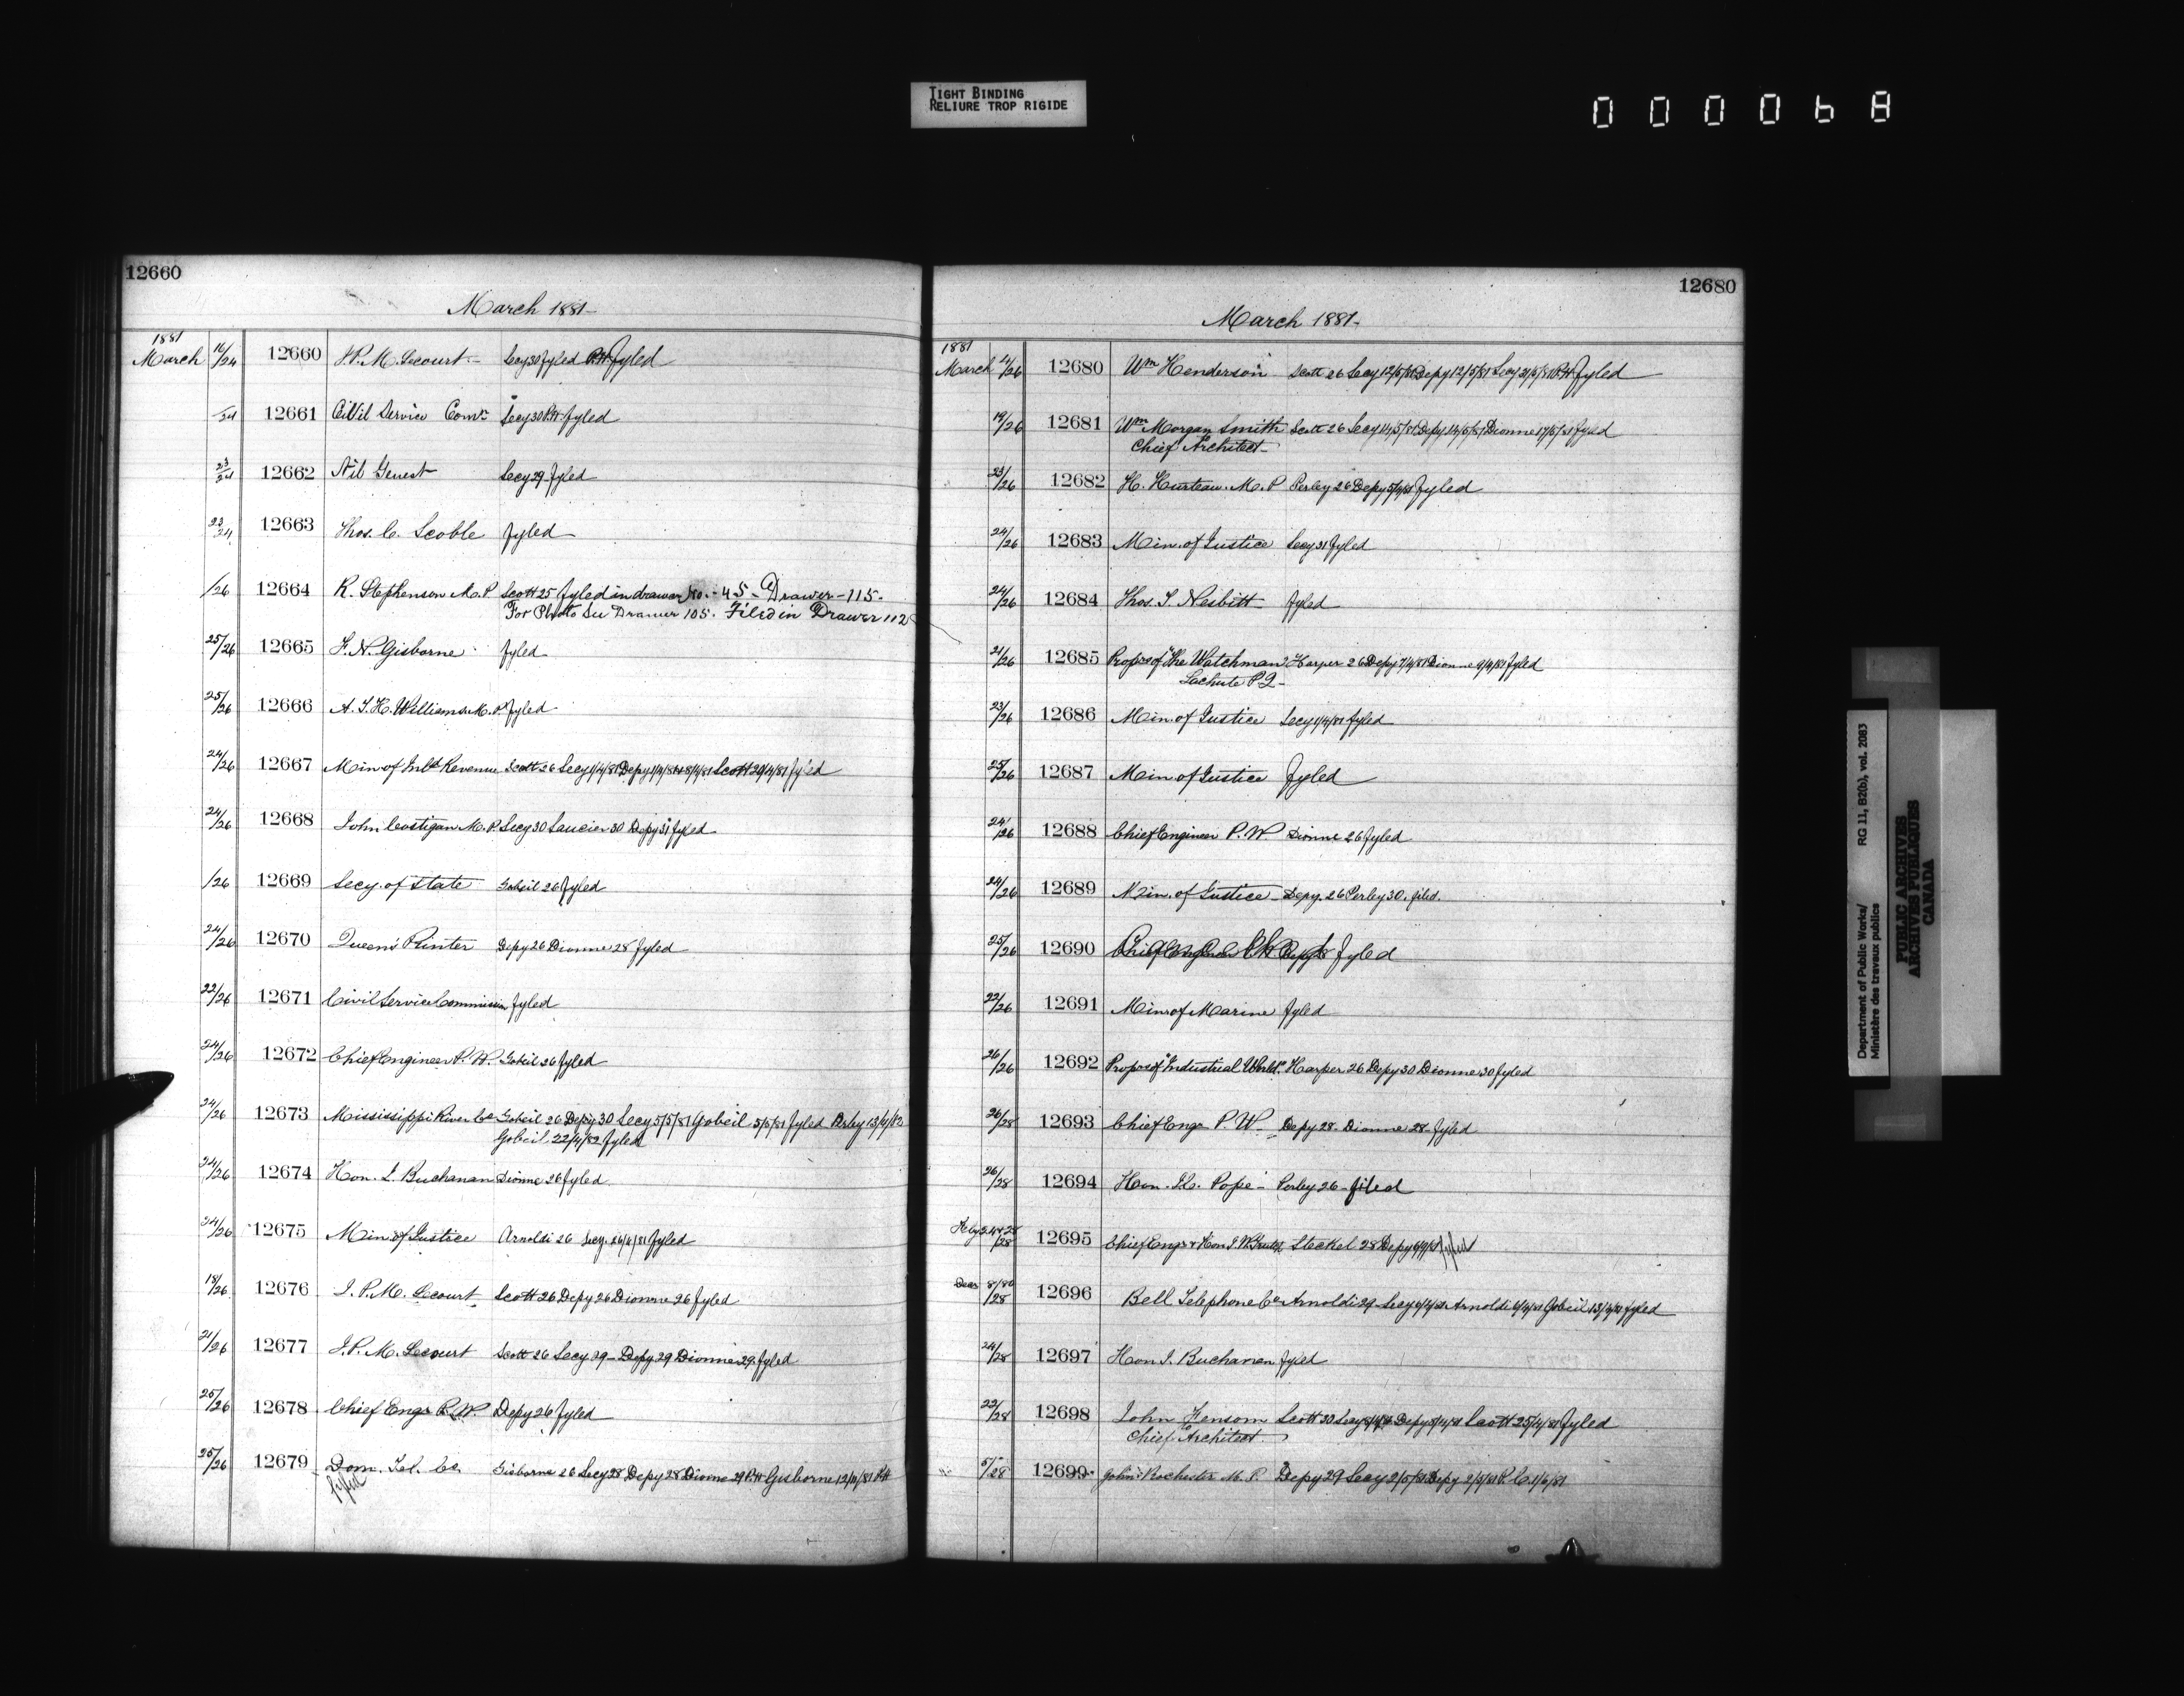 TIGHT BINDING
RELIURE TROP RIGIDE
000068
12660
March 1881-
1881
March 16/24 12660 J.P.M. Lecourt - Secy 30 fyled P.H. fyled
/24 12661 Civil Service Comrs Secy 30 P.H. fyled
23/24 12662 Genest Secy 29 fyled
23/24 12663 Thos. C. Scoble fyled
/26 12664 R. Stephenson M.P. Scott 25 fyled in drawer No. - 45 - Drawer - 115 -
For Photo See Drawer 105. Filed in Drawer 112
25/26 12665 F.N. Gisborne fyled
25/26 12666 A.T.H. Williams M.P. fyled
24/26 12667 Min of Inld Revenue Scott 26 Secy 1/4/81 Depy 1/4/81 Scott 29/4/81 fyled
24/26 12668 John Costigan M.P. Secy 30 Saucier 30 Depy 31 fyled
/26 12669 Secy. of State Gobeil 26 fyled
24/26 12670 Queens Printer Depy 26 Dionne 28 fyled
22/26 12671 Civil Service Commission fyled
24/26 12672 Chief Engineer P.W. Gobeil 26 fyled
24/26 12673 Mississippi River Co Gobeil 26 Depy 30 Secy 5/5/81 Gobeil 5/5/81 fyled Perley 13/4/82
Gobeil 22/4/82 fyled
24/26 12674 Hon. I. Buchanan Dionne 26 fyled
24/26 12675 Min. of Justice Arnoldi 26 Secy. 26/4/81 fyled
18/26 12676 J.P.M. Lecourt Scott 26 Depy 26 Dionne 26 fyled
21/26 12677 J.P.M. Lecourt Scott 26 Secy 29 - Depy 29 Dionne 29 fyled
25/26 12678 Chief Engr P.W. Depy 26 fyled
25/26 12679 Dom. Tel. Co. Gisborne 26 Secy 28 Depy 28 Dionne 29 P.H. Gisborne 12/11/81 P.H.
fyled
12680
March 1881-
1881
March /26 12680 Wm Henderson Scott 26 Secy 12/5/81 Depy 12/5/81 Secy 21/5/81 P.H. fyled
19/26 12681 Wm Morgan Smith Scott 26 Secy 14/5/81 Depy 14/5/81 Dionne 17/5/81 fyled
Chief Architect -
23/26 12682 H. Hurteau M.P Perley 26 Depy fyled
24/26 12683 Min. of Justice Secy 31 fyled
24/26 12684 Thos. S. Nesbitt fyled
21/26 12685 Proprs of "The Watchman" Harper 26 Depy 7/4/81 Dionne 9/4/81 fyled
Lachute P.Q -
23/26 12686 Min. of Justice Secy 1/4/81 fyled
25/26 12687 Min of Justice fyled
24/26 12688 Chief Engineer P.W. Dionne 26 fyled
24/26 12689 Min. of Justice - Depy. 26 Perley 30. filed.
25/26 12690 Chief Engineer P.W. Depy 28 fyled
22/26 12691 Min of Marine fyled
26/26 12692 Propr of "Industrial World" Harper 26 Depy 30 Dionne 30 fyled
26/28 12693 Chief Engr P.W. - Depy 28 - Dionne 28 - fyled
26/28 12694 Hon. Pope - Perley 26 - filed
Feby 24 & 28/28 12695 Chief Engr & Hon J.W. Trutch Steckel 28 Depy fyled
Decr 8/80/28 12696 Bell Telephone Co Arnoldi 29 - Secy 6/4/81 Arnoldi 6/4/81 Gobeil 13/4/81 fyled
24/28 12697 Hon I. Buchanan fyled
22/28 12698 John Fensom Scott 30 Secy Depy Scott 25/4/81 fyled
Chief Architect -
5/28 12699 John Rochester M.P. Depy 29 Secy 2/5/81 Depy 2/5/81 R.C. 1/6/81
Department of Public Works/
Ministère des travaux publics
RG 11, B2(b), vol. 2083
PUBLIC ARCHIVES
ARCHIVES PUBLIQUES
CANADA